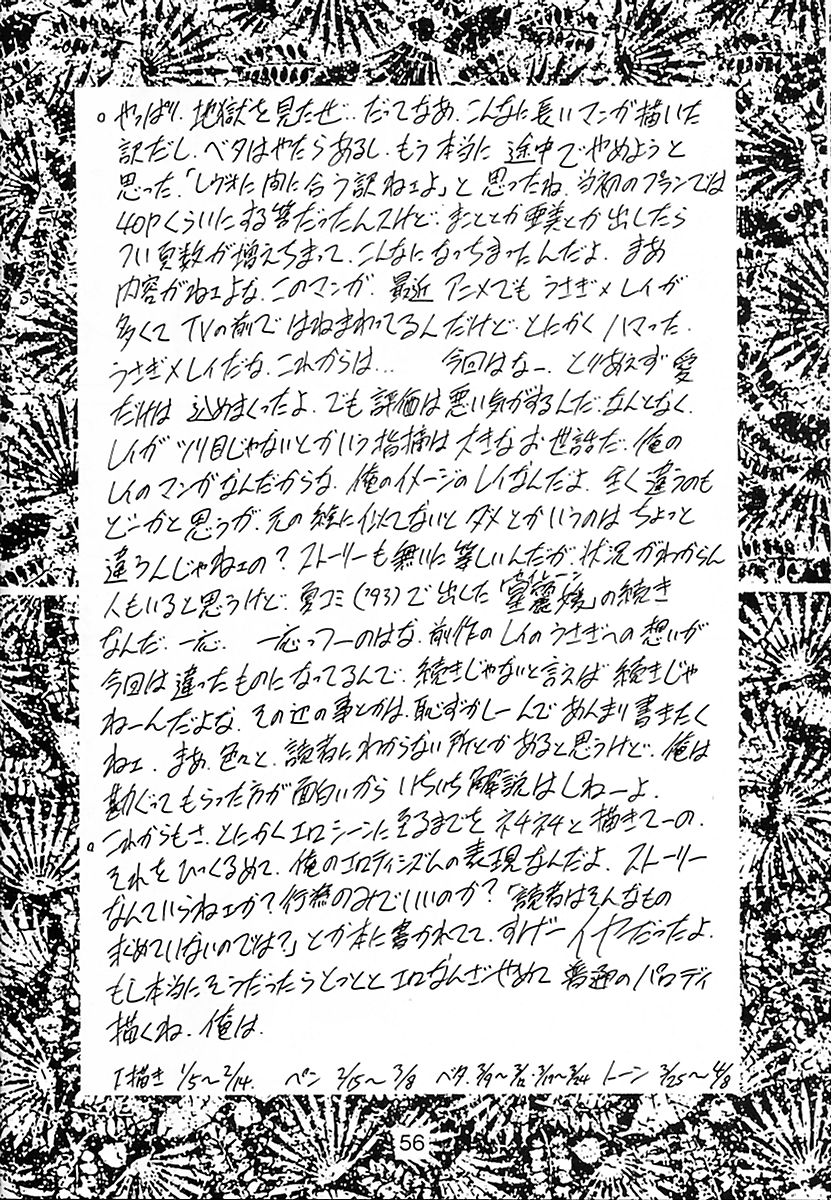 ○やっぱり、地獄を見たぜ…だってなあ、こんなに長いマンガ描いた
訳だし、ベタはやたらあるし、もう本当に途中でやめようと
思った。「レヴォに間に合う訳ねェよ」と思ったね。当初のプランでは
40Pくらいにする筈だったんスけど、まこととか亜美とか出したら
つい頁数が増えちまって、こんなになっちまったんだよ。まあ
内容がねェよな、このマンガ。最近アニメでもうさぎ×レイが
多くてTVの前ではねまわってるんだけど、とにかくハマった。
うさぎ×レイだな、これからは… 今回はなー、とりあえず愛
だけは込めまくったよ。でも評価は悪い気がするんだ、なんとなく。
レイがツリ目じゃないとかいう指摘は大きなお世話だ。俺の
レイのマンガなんだからな、俺のイメージのレイなんだよ。全く違うのも
どーかと思うが、元の絵に似てないとダメとかいうのはちょっと
違うんじゃねェの?ストーリーも無いに等しいんだが、状況がわからん
人もいると思うけど、夏コミ('93)で出した「麗嬢」の続き
なんだ、一応。 一応っつーのはな、前作のレイのうさぎへの想いが
今回は違ったものになってるんで、続きじゃないと言えば続きじゃ
ねーんだよな。その辺の事とかは、恥ずかしーんであんまり書きたく
ねェ。まあ、色々と、読者にわからない所とかあると思うけど、俺は
勘ぐってもらった方が面白いからいちいち解説はしねーよ。
○これからもさ、とにかくエロシーンに至るまでをネチネチと描きてーの。
それをひっくるめて、俺のエロティシズムの表現なんだよ。ストーリー
なんていらねェか?行為のみでいいのか?「読者はそんなもの
求めていないのでは?」とか本に書かれてて、すげーイヤだったよ。
もし本当にそうだったらとっととエロなんざやめて普通のパロディ
描くね、俺は。
下描き 1/5~2/14. ペン 2/15~3/8 ベタ.3/9~3/12・3/17~3/24 トーン 3/25~4/8
56